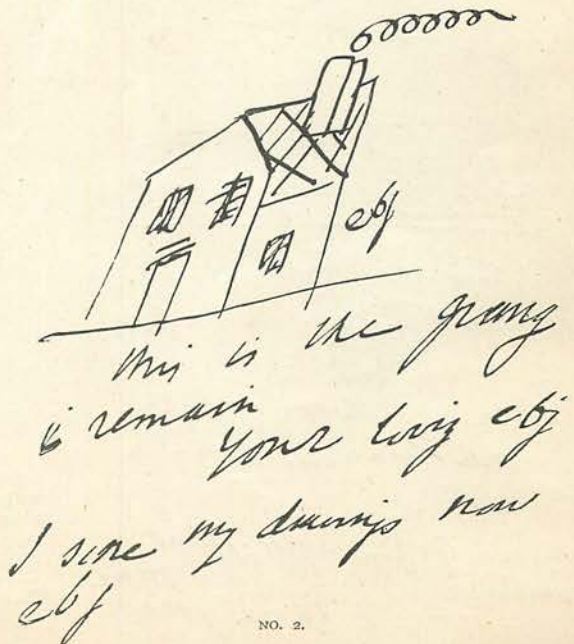 ebj
this is the grang
is remain
your lovig ebj
I sine my drawings now
ebj
NO. 2.